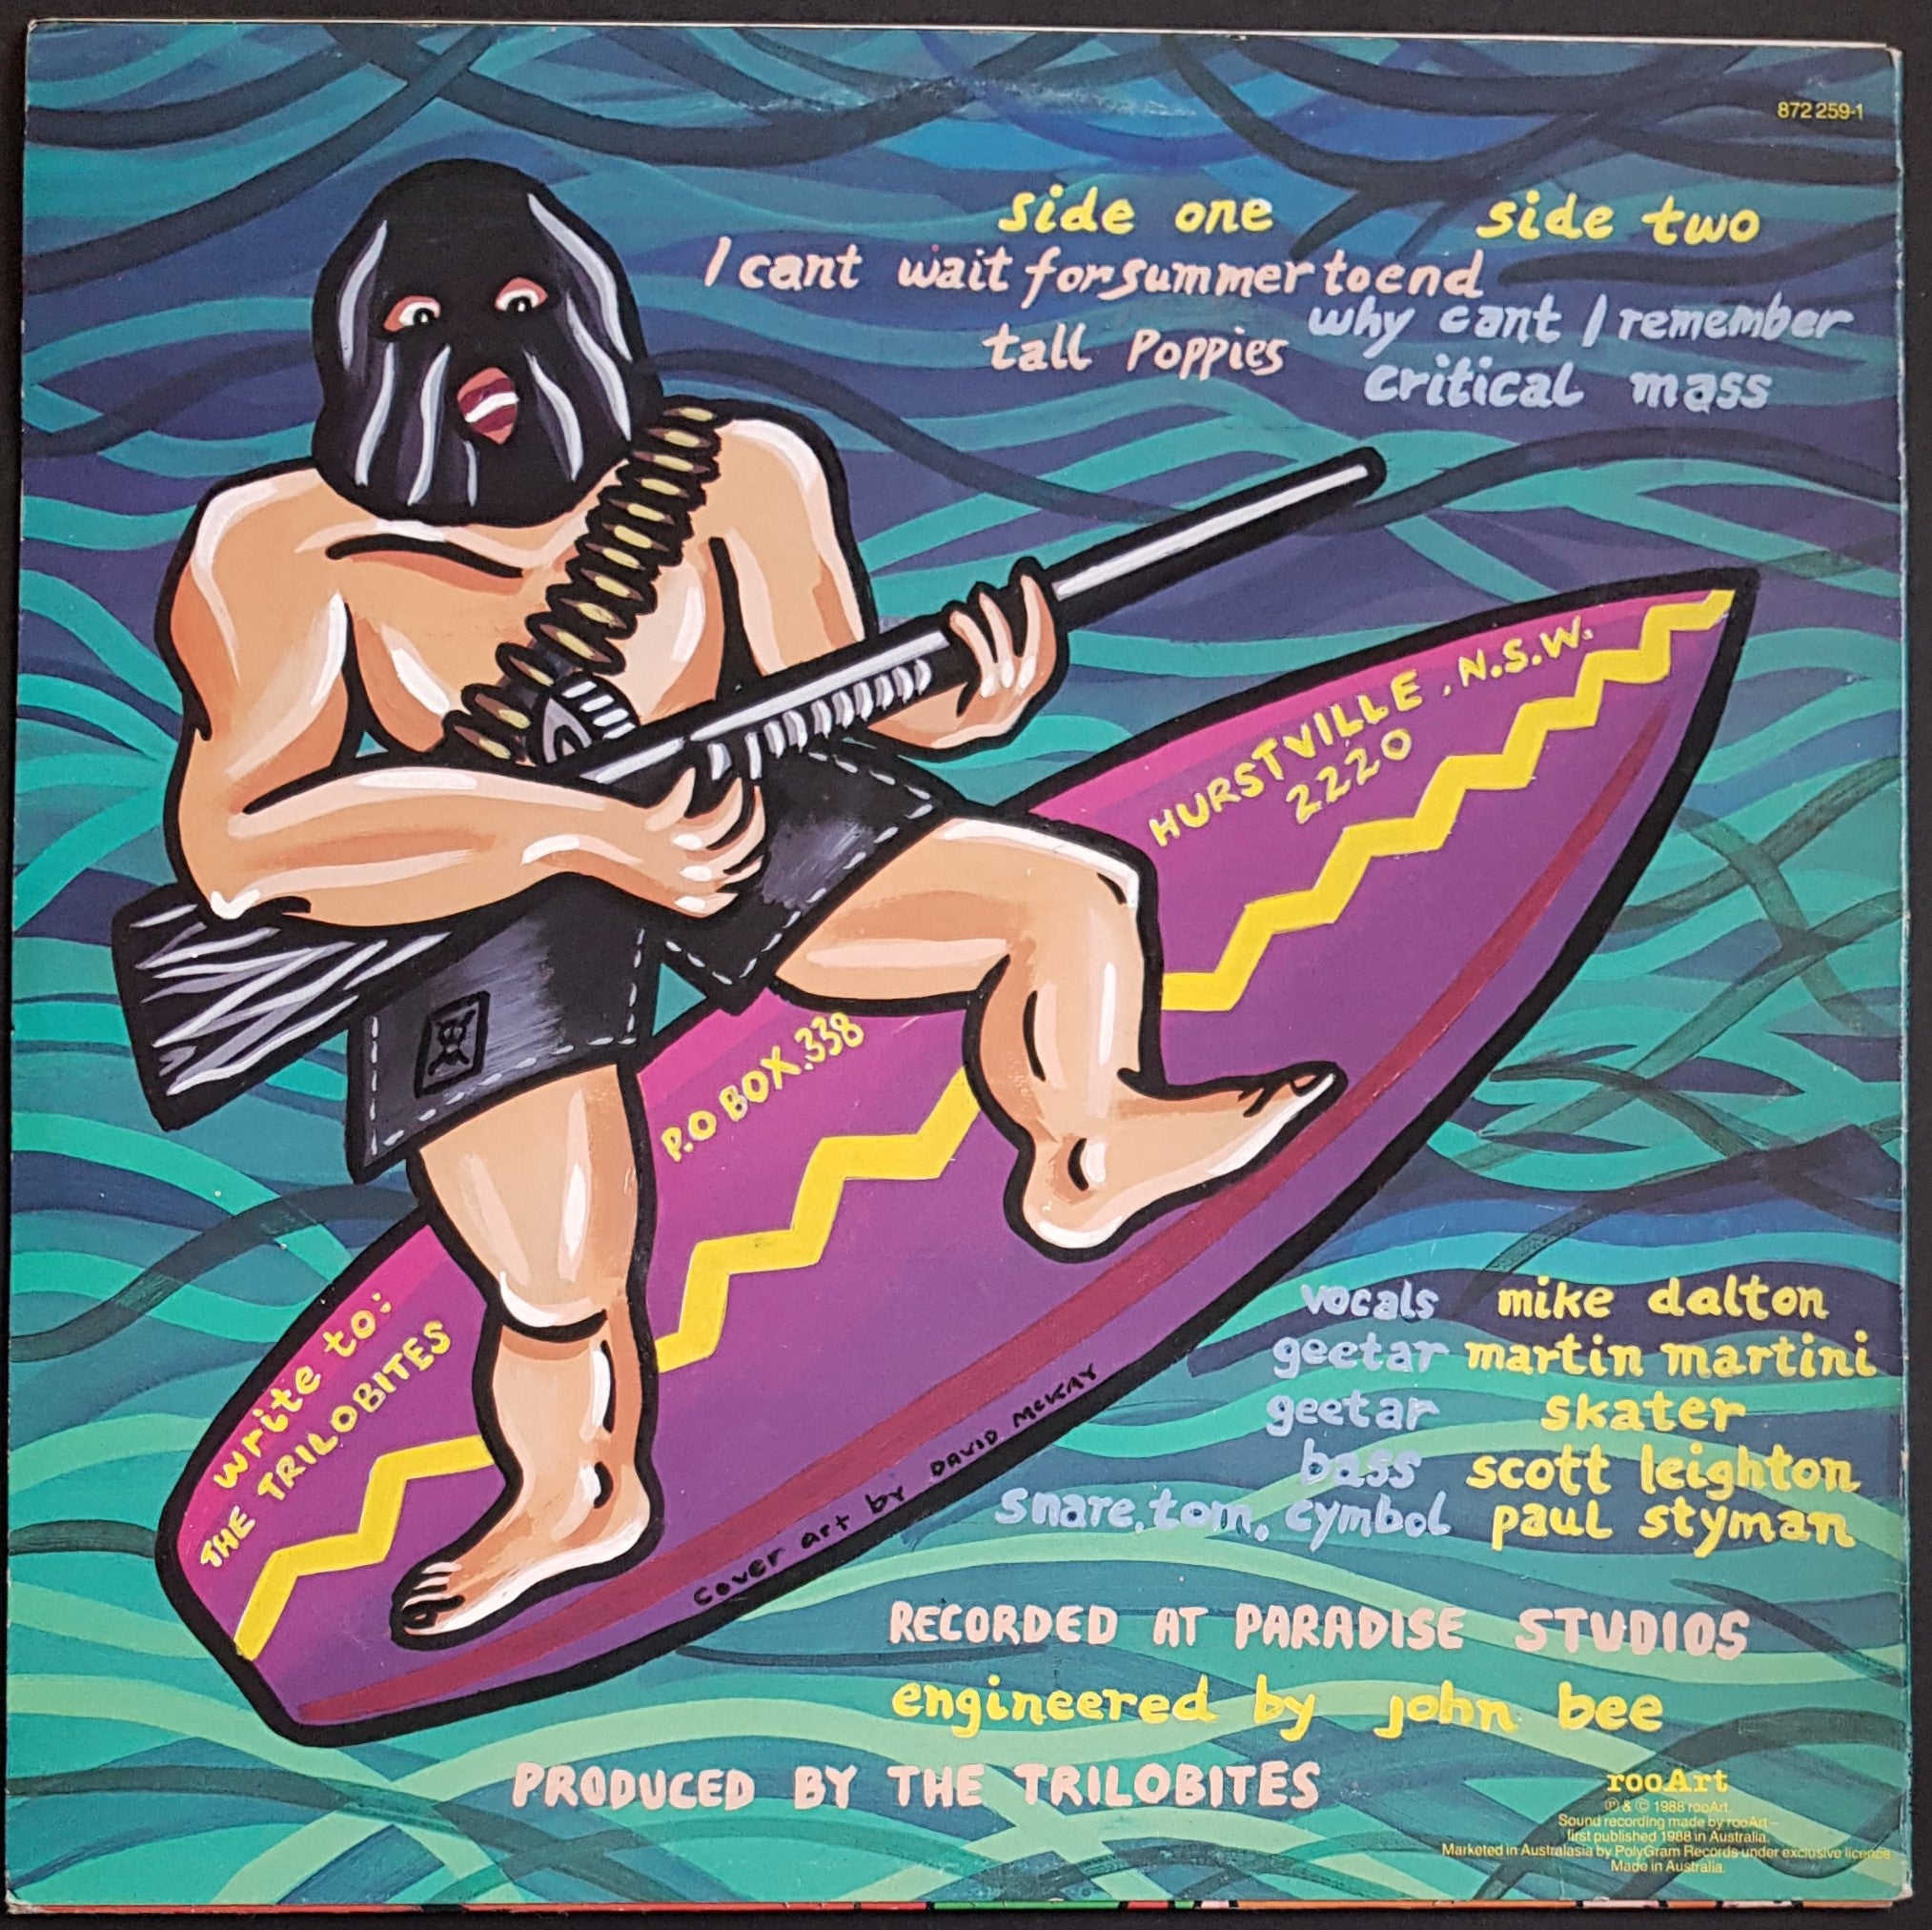 872 259-1
side one
I cant wait for summer to end
tall Poppies
side two
why cant I remember
critical mass
HURSTVILLE, N.S.W.
2220
P.O BOX.338
write to:
THE TRILOBITES
cover art by DAVID McKAY
vocals mike dalton
geetar martin martini
geetar skater
bass scott leighton
snare, tom, cymbol paul styman
RECORDED AT PARADISE STUDIOS
engineered by john bee
PRODUCED BY THE TRILOBITES
rooArt
℗ & © 1988 rooArt.
Sound recording made by rooArt –
first published 1988 in Australia.
Marketed in Australasia by PolyGram Records under exclusive licence
Made in Australia.